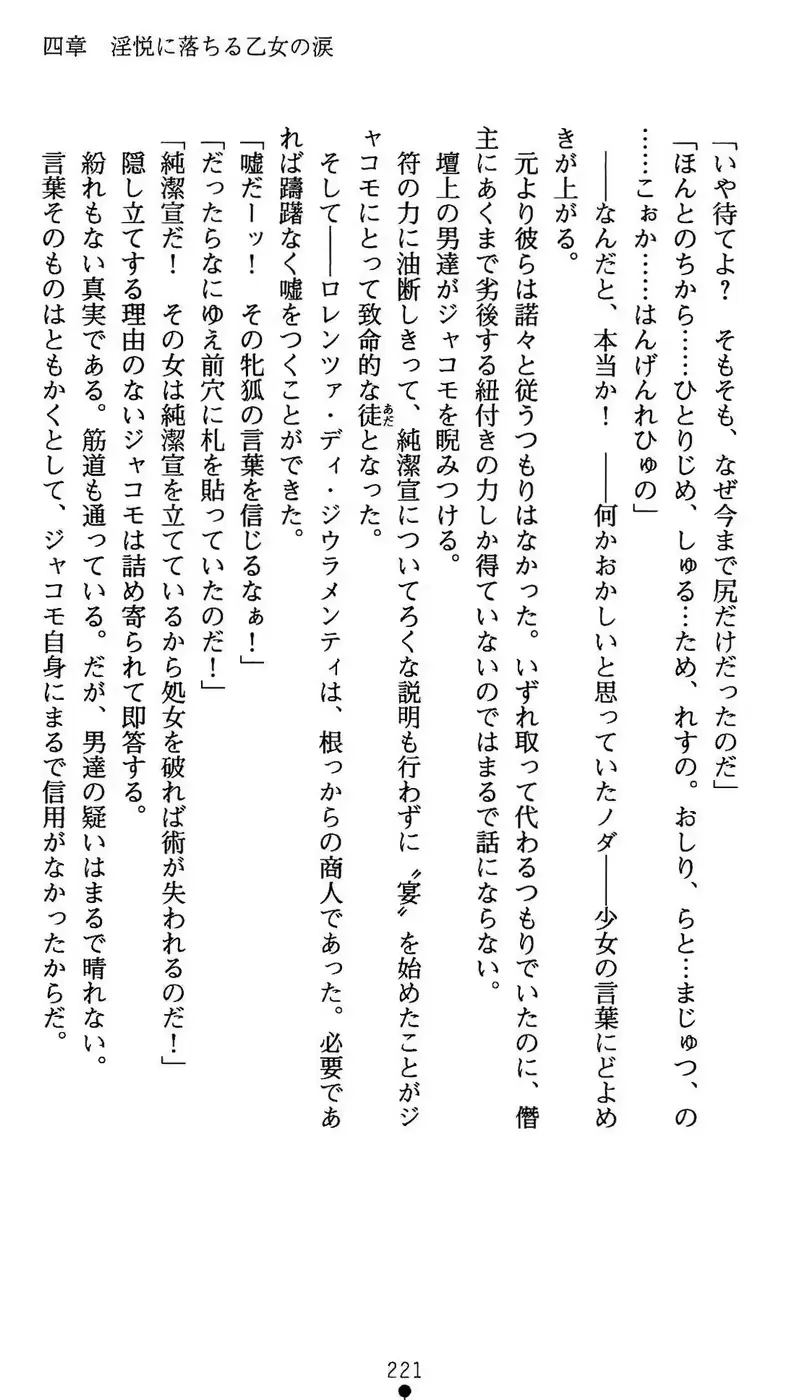 四章　淫悦に落ちる乙女の涙
「いや待てよ？　そもそも、なぜ今まで尻だけだったのだ」
「ほんとのちから……ひとりじめ、しゅる…ため、れすの。おしり、らと…まじゅつ、の
……こぉか……はんげんれひゅの」
――なんだと、本当か！　――何かおかしいと思っていたノダ――少女の言葉にどよめ
きが上がる。
元より彼らは諾々と従うつもりはなかった。いずれ取って代わるつもりでいたのに、僭
主にあくまで劣後する紐付きの力しか得ていないのではまるで話にならない。
壇上の男達がジャコモを睨みつける。
符の力に油断しきって、純潔宣についてろくな説明も行わずに〝宴〟を始めたことがジ
ャコモにとって致命的な徒となった。
そして――ロレンツァ・ディ・ジウラメンティは、根っからの商人であった。必要であ
れば躊躇なく嘘をつくことができた。
「嘘だーッ！　その牝狐の言葉を信じるなぁ！」
「だったらなにゆえ前穴に札を貼っていたのだ！」
「純潔宣だ！　その女は純潔宣を立てているから処女を破れば術が失われるのだ！」
隠し立てする理由のないジャコモは詰め寄られて即答する。
紛れもない真実である。筋道も通っている。だが、男達の疑いはまるで晴れない。
言葉そのものはともかくとして、ジャコモ自身にまるで信用がなかったからだ。
あだ
221